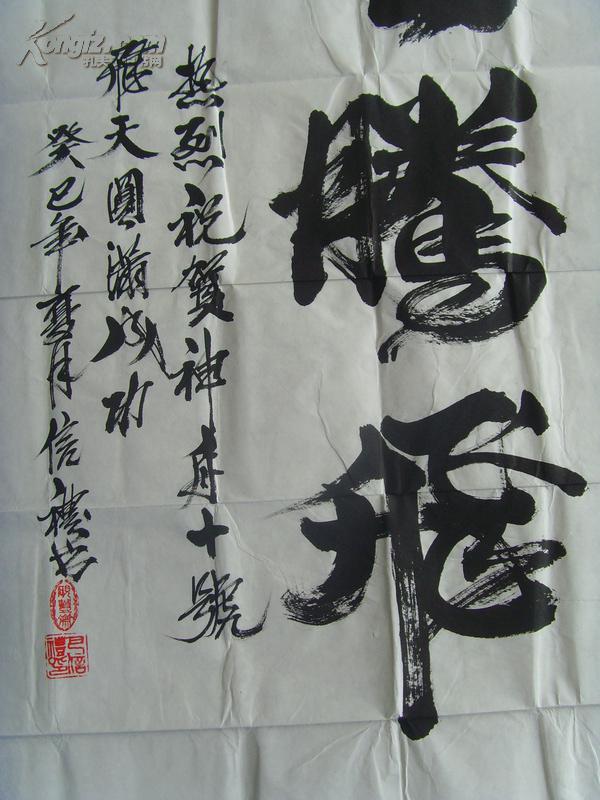 騰飛
热烈祝贺神舟十號
飛天圓滿成功
癸巳年夏月信禮书
Kongfz.com
孔夫子旧书网